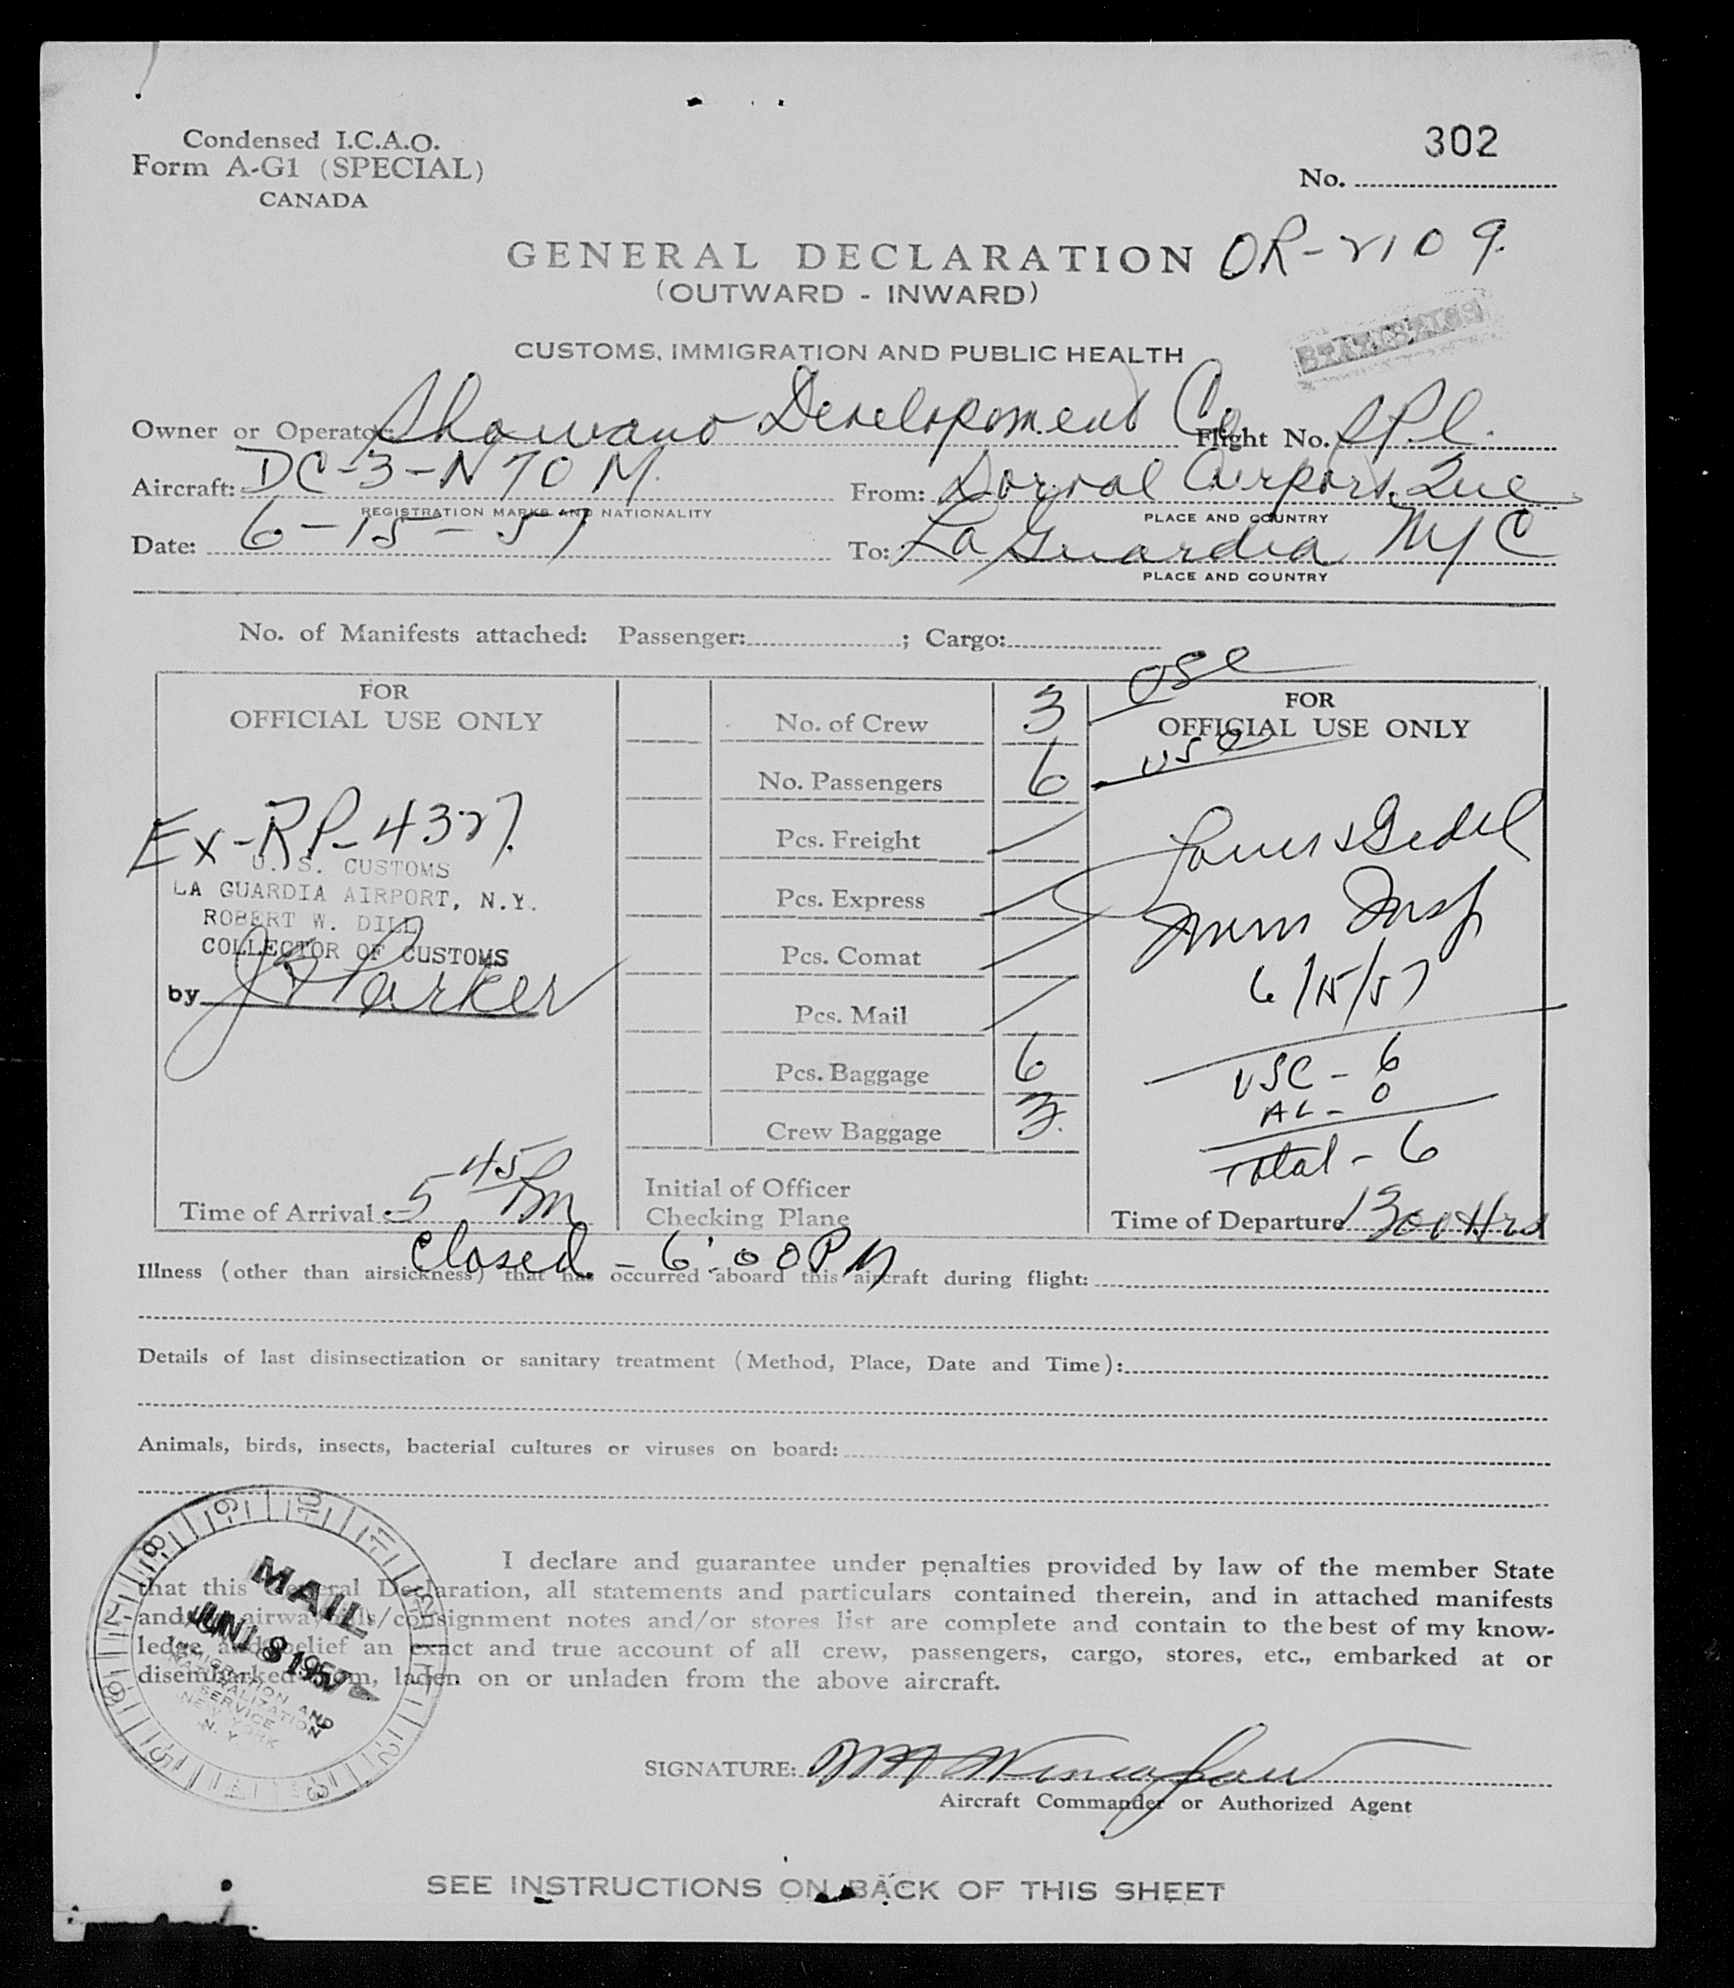 Condensed I.C.A.O.
Form A-G1 (SPECIAL)
CANADA
302
No.
GENERAL DECLARATION OR-2109.
(OUTWARD - INWARD)
STATISTICS
CUSTOMS, IMMIGRATION AND PUBLIC HEALTH
Owner or Operator: Shawano Development Co Flight No.
Aircraft: DC-3-N70M. From: Dorval Airport, Que
REGISTRATION MARKS AND NATIONALITY PLACE AND COUNTRY
Date: 6-15-57 To: La Guardia NYC
PLACE AND COUNTRY
No. of Manifests attached: Passenger: ; Cargo:
FOR
OFFICIAL USE ONLY
Ex-RP-4327.
U. S. CUSTOMS
LA GUARDIA AIRPORT, N.Y.
ROBERT W. DILL
COLLECTOR OF CUSTOMS
by J Parker
Time of Arrival 5 45 Pm
No. of Crew 3
No. Passengers 6
Pcs. Freight
Pcs. Express
Pcs. Comat
Pcs. Mail
Pcs. Baggage 6
Crew Baggage 3.
Initial of Officer
Checking Plane
FOR
OFFICIAL USE ONLY
Imm Insp
6/15/57
USC - 6
AL - 0
Total - 6
Time of Departure 1300 Hrs
Closed - 6:00 PM
Illness (other than airsickness) that has occurred aboard this aircraft during flight:
Details of last disinsectization or sanitary treatment (Method, Place, Date and Time):
Animals, birds, insects, bacterial cultures or viruses on board:
I declare and guarantee under penalties provided by law of the member State
that this General Declaration, all statements and particulars contained therein, and in attached manifests
and/or airwaybills/consignment notes and/or stores list are complete and contain to the best of my know-
ledge and belief an exact and true account of all crew, passengers, cargo, stores, etc., embarked at or
disembarked from, laden on or unladen from the above aircraft.
MAIL
JUN 18 1957
IMMIGRATION AND
NATURALIZATION
SERVICE
NEW YORK
N. Y.
SIGNATURE:
Aircraft Commander or Authorized Agent
SEE INSTRUCTIONS ON BACK OF THIS SHEET